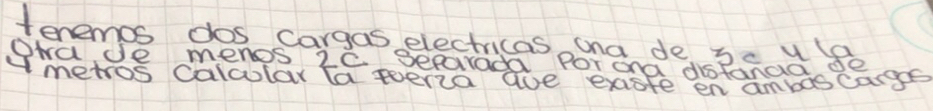 tenemos dos cargas electricas una de 3c y la
otra de menos 2c separada por una distancia de
4 metros calcular la fuerza que existe en ambas cargas